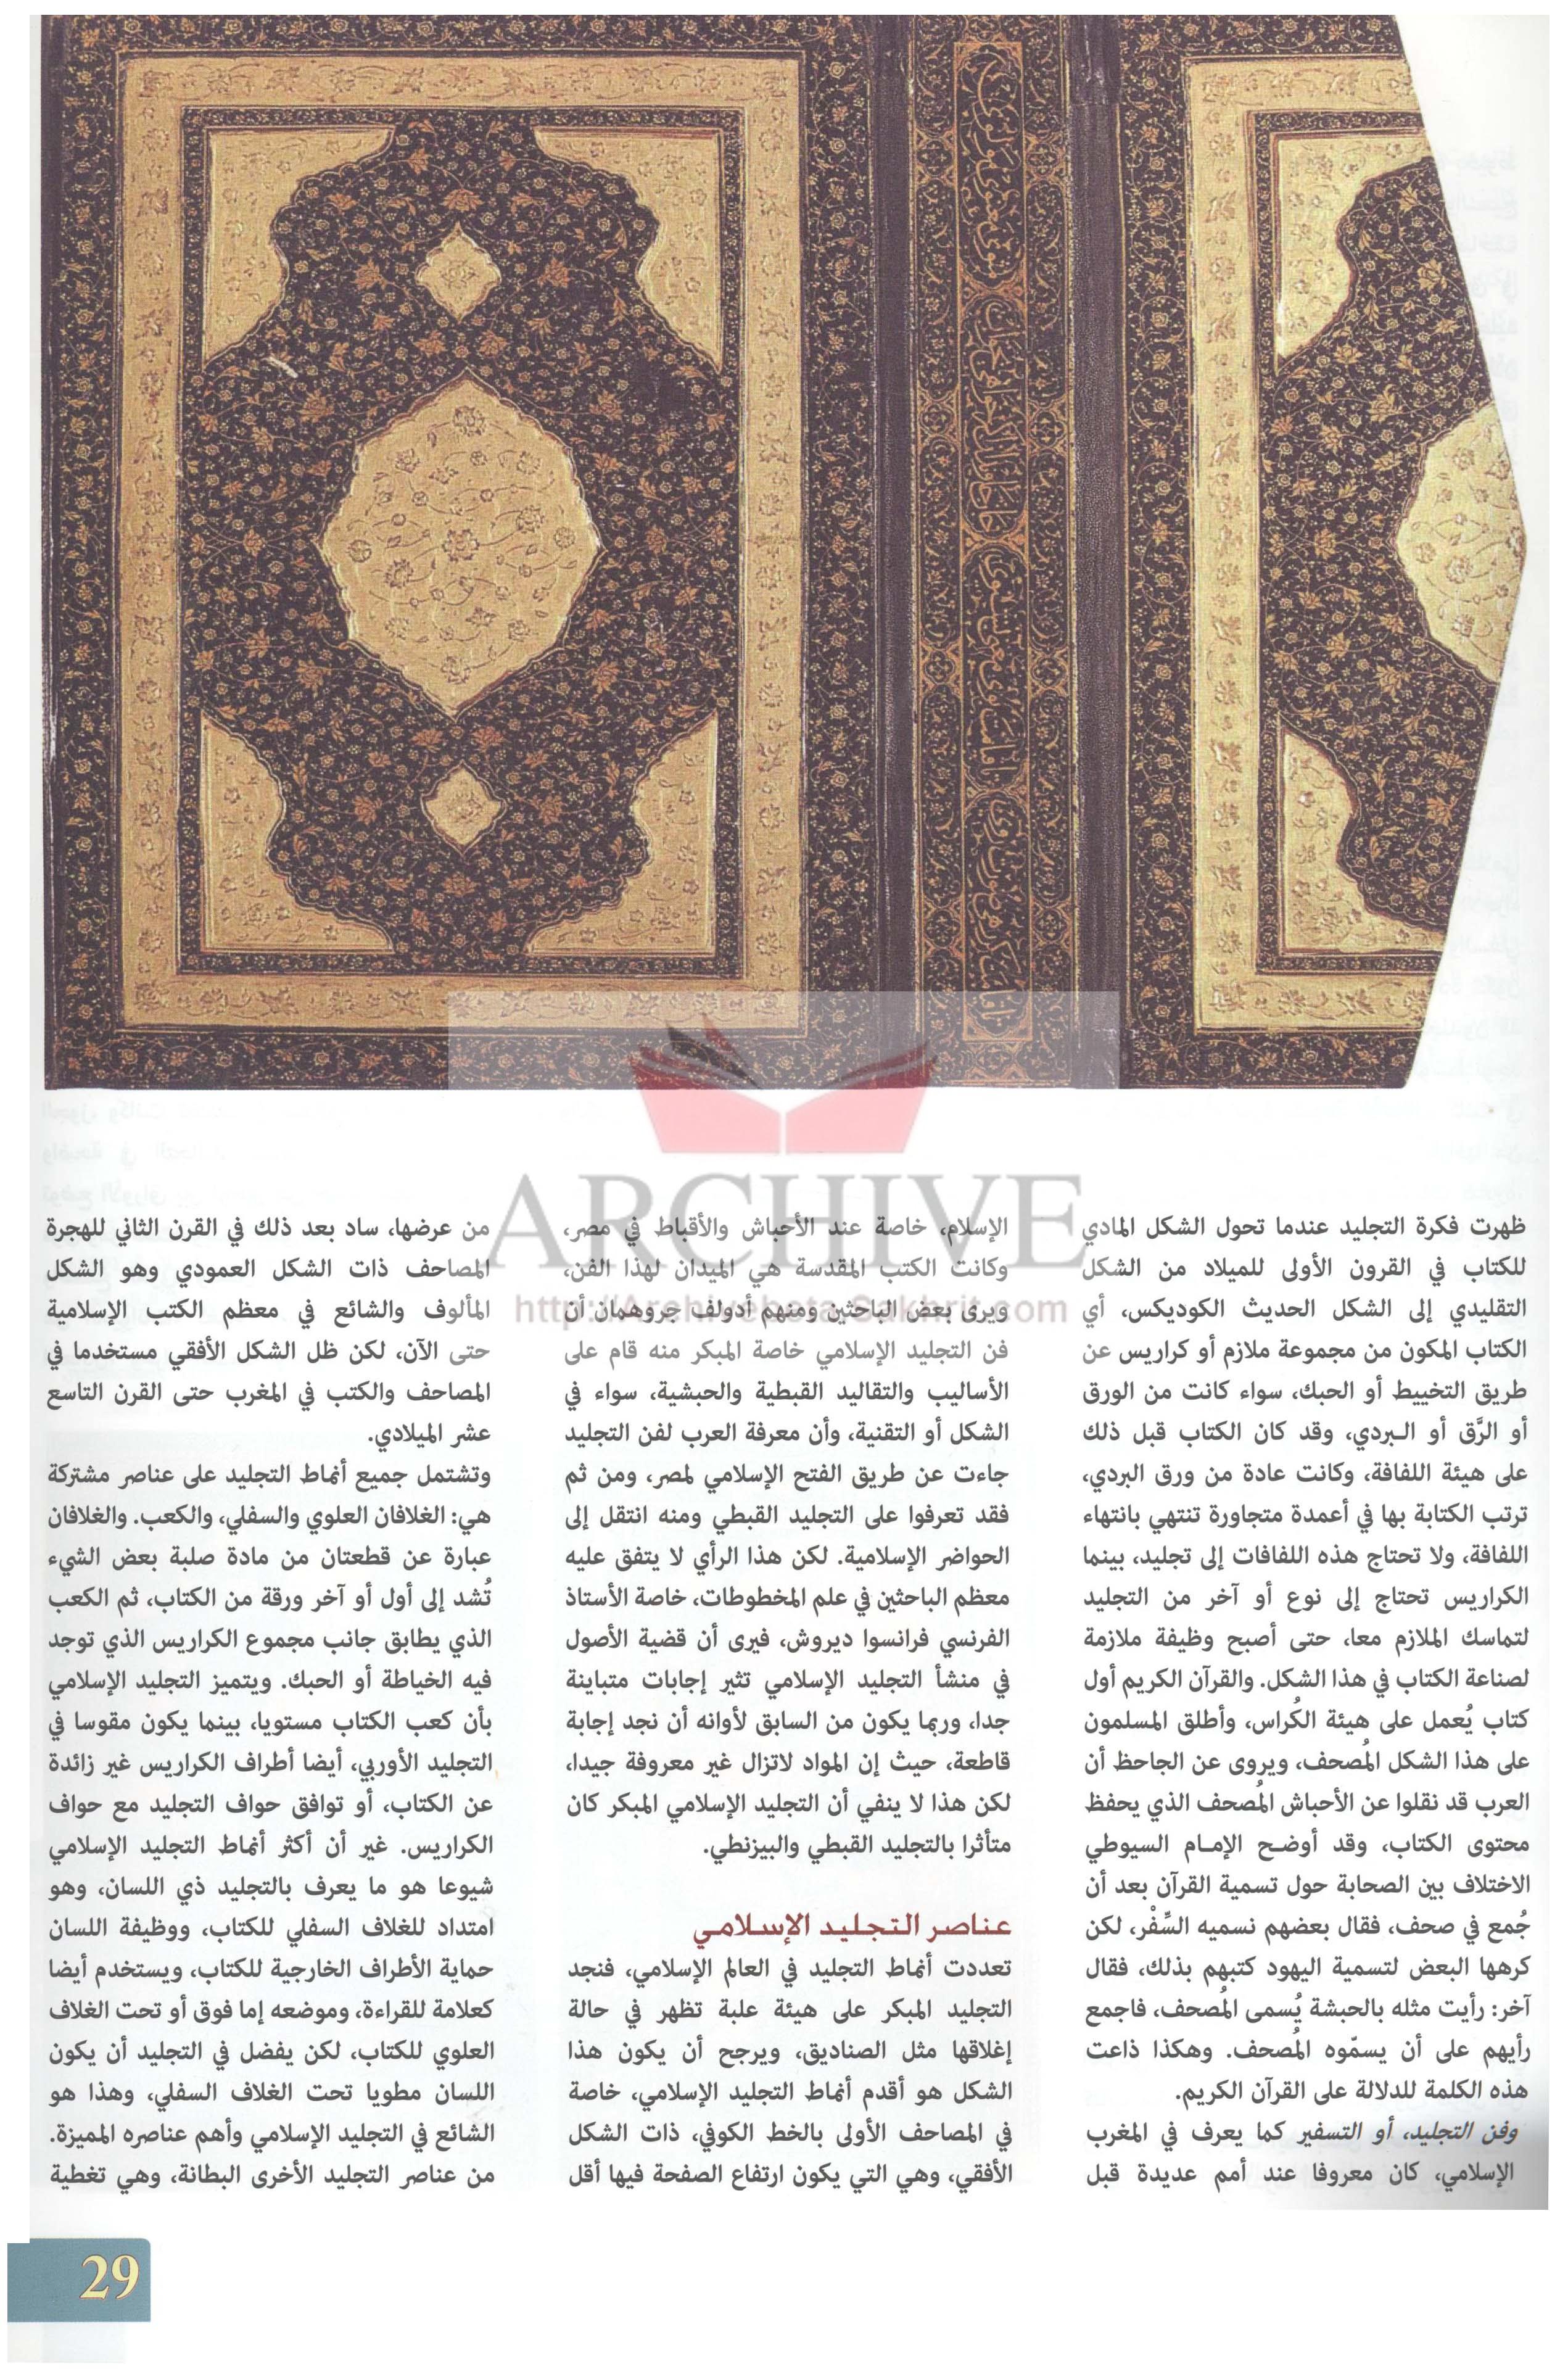 ARCHIVE
http://Archivebeta.Sakhrit.com
ظهرت فكرة التجليد عندما تحول الشكل المادي
للكتاب في القرون الأولى للميلاد من الشكل
التقليدي إلى الشكل الحديث الكوديكس، أي
الكتاب المكون من مجموعة ملازم أو كراريس عن
طريق التخييط أو الحبك، سواء كانت من الورق
أو الرَّق أو البردي، وقد كان الكتاب قبل ذلك
على هيئة اللفافة، وكانت عادة من ورق البردي،
ترتب الكتابة بها في أعمدة متجاورة تنتهي بانتهاء
اللفافة، ولا تحتاج هذه اللفافات إلى تجليد، بينما
الكراريس تحتاج إلى نوع أو آخر من التجليد
لتماسك الملازم معا، حتى أصبح وظيفة ملازمة
لصناعة الكتاب في هذا الشكل. والقرآن الكريم أول
كتاب يُعمل على هيئة الكُراس، وأطلق المسلمون
على هذا الشكل المُصحف، ويروى عن الجاحظ أن
العرب قد نقلوا عن الأحباش المُصحف الذي يحفظ
محتوى الكتاب، وقد أوضح الإمام السيوطي
الاختلاف بين الصحابة حول تسمية القرآن بعد أن
جُمع في صحف، فقال بعضهم نسميه السِّفْر، لكن
كرهها البعض لتسمية اليهود كتبهم بذلك، فقال
آخر: رأيت مثله بالحبشة يُسمى المُصحف، فاجمع
رأيهم على أن يسمّوه المُصحف. وهكذا ذاعت
هذه الكلمة للدلالة على القرآن الكريم.
وفن التجليد، أو التسفير كما يعرف في المغرب
الإسلامي، كان معروفا عند أمم عديدة قبل
الإسلام، خاصة عند الأحباش والأقباط في مصر،
وكانت الكتب المقدسة هي الميدان لهذا الفن،
ويرى بعض الباحثين ومنهم أدولف جروهمان أن
فن التجليد الإسلامي خاصة المبكر منه قام على
الأساليب والتقاليد القبطية والحبشية، سواء في
الشكل أو التقنية، وأن معرفة العرب لفن التجليد
جاءت عن طريق الفتح الإسلامي لمصر، ومن ثم
فقد تعرفوا على التجليد القبطي ومنه انتقل إلى
الحواضر الإسلامية. لكن هذا الرأي لا يتفق عليه
معظم الباحثين في علم المخطوطات، خاصة الأستاذ
الفرنسي فرانسوا ديروش، فيرى أن قضية الأصول
في منشأ التجليد الإسلامي تثير إجابات متباينة
جدا، وربما يكون من السابق لأوانه أن نجد إجابة
قاطعة، حيث إن المواد لاتزال غير معروفة جيدا،
لكن هذا لا ينفي أن التجليد الإسلامي المبكر كان
متأثرا بالتجليد القبطي والبيزنطي.
عناصر التجليد الإسلامي
تعددت أنماط التجليد في العالم الإسلامي، فنجد
التجليد المبكر على هيئة علبة تظهر في حالة
إغلاقها مثل الصناديق، ويرجح أن يكون هذا
الشكل هو أقدم أنماط التجليد الإسلامي، خاصة
في المصاحف الأولى بالخط الكوفي، ذات الشكل
الأفقي، وهي التي يكون ارتفاع الصفحة فيها أقل
من عرضها، ساد بعد ذلك في القرن الثاني للهجرة
المصاحف ذات الشكل العمودي وهو الشكل
المألوف والشائع في معظم الكتب الإسلامية
حتى الآن، لكن ظل الشكل الأفقي مستخدما في
المصاحف والكتب في المغرب حتى القرن التاسع
عشر الميلادي.
وتشتمل جميع أنماط التجليد على عناصر مشتركة
هي: الغلافان العلوي والسفلي، والكعب. والغلافان
عبارة عن قطعتان من مادة صلبة بعض الشيء
تُشد إلى أول أو آخر ورقة من الكتاب، ثم الكعب
الذي يطابق جانب مجموع الكراريس الذي توجد
فيه الخياطة أو الحبك. ويتميز التجليد الإسلامي
بأن كعب الكتاب مستويا، بينما يكون مقوسا في
التجليد الأوربي، أيضا أطراف الكراريس غير زائدة
عن الكتاب، أو توافق حواف التجليد مع حواف
الكراريس. غير أن أكثر أنماط التجليد الإسلامي
شيوعا هو ما يعرف بالتجليد ذي اللسان، وهو
امتداد للغلاف السفلي للكتاب، ووظيفة اللسان
حماية الأطراف الخارجية للكتاب، ويستخدم أيضا
كعلامة للقراءة، وموضعه إما فوق أو تحت الغلاف
العلوي للكتاب، لكن يفضل في التجليد أن يكون
اللسان مطويا تحت الغلاف السفلي، وهذا هو
الشائع في التجليد الإسلامي وأهم عناصره المميزة.
من عناصر التجليد الأخرى البطانة، وهي تغطية
29